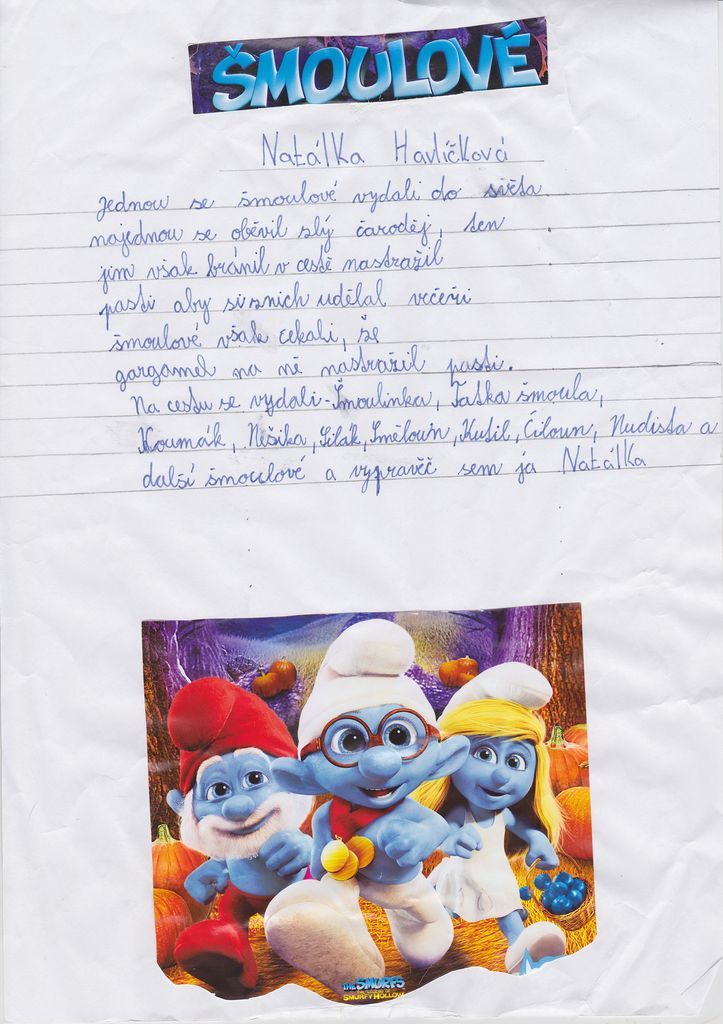 ŠMOULOVÉ
Natálka Havlíčková
Jednou se šmoulové vydali do světa
najednou se oběvil zlý čaroděj, ten
jim však bránil v cestě nastražil
pasti aby si znich udělal večeři
šmoulové však čekali, že
gargamel na ně nastražil pasti.
Na cestu se vydali-Šmoulinka, Taťka šmoula,
Koumák, Nešika, Silák, Smíloun, Kutil, Čiloun, Nudista a
další šmoulové a vypravěč sem já Natálka
THE SMURFS
SMURFY HOLLOW